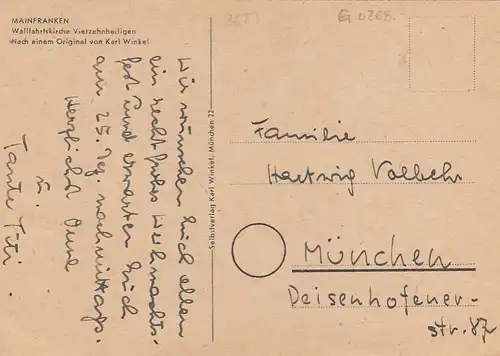 MAINFRANKEN
Wallfahrtskirche Vierzehnheiligen
Nach einem Original von Karl Winkel
Wir wünschen Euch allen
ein recht frohes Weihnachts-
fest und erwarten Euch
am 25. Dez. nachmittags.
Herzlichst Eure
Tante Titi.
Selbstverlag Karl Winkel, München 22
Familie
Hartwig Volbehr
München
Deisenhofener-
str. 87